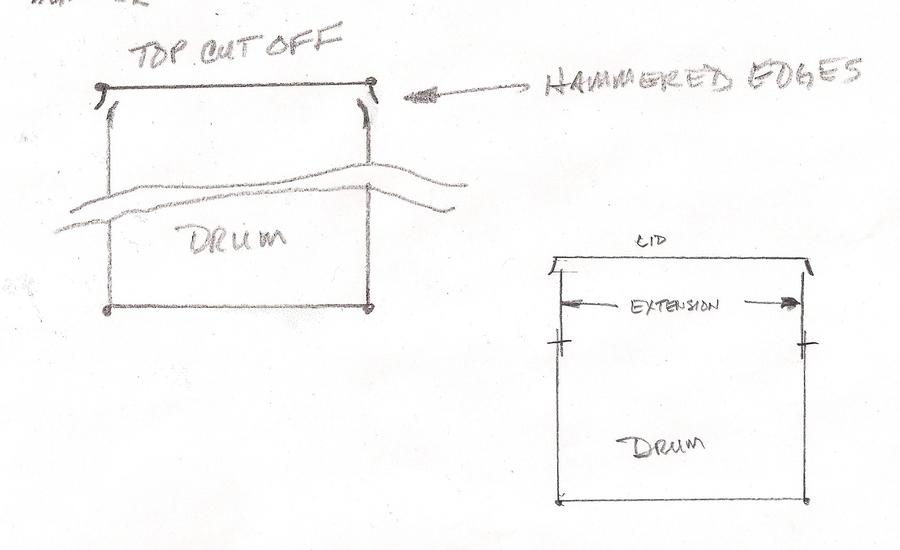 TOP CUT OFF
HAMMERED EDGES
DRUM
LID
EXTENSION
DRUM